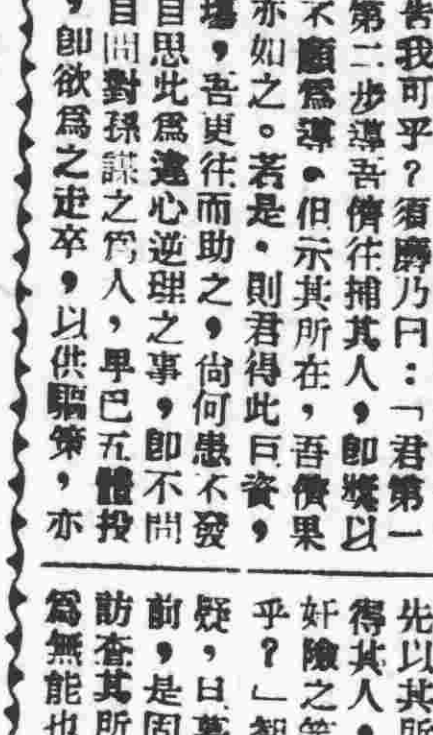 告我可乎？須麟乃曰：「君第一
第二步導吾儕往捕其人，卽獎以
不願爲導。但示其所在，吾儕果
亦如之。若是。則君得此巨資，
塲，吾更往而助之，尙何患不發
自思此爲違心逆理之事，卽不問
自問對孫謀之爲人，早巳五體投
，卽欲爲之走卒，以供驅策，亦
先以其所
得其人。
奸險之
乎？」
疑，日
前，是固
訪查其所
爲無能也